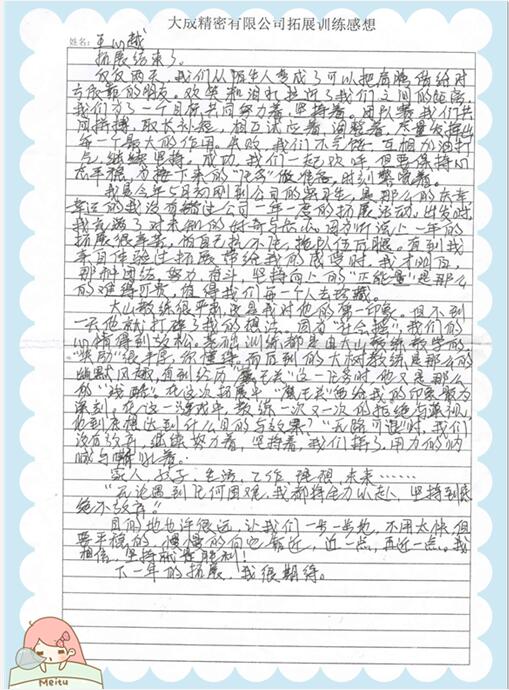 大成精密有限公司拓展训练感想
姓名：
拓展结束了。
仅仅两天，我们从陌生人变成了可以把肩膀借给对
方依靠的朋友。欢笑和泪水拉近了我们之间的距离，
我们为了一个目标共同努力着，坚持着。团队赛我们共
同拼搏，取长补短，相互试应着，调整着，尽量发挥出
每一个最大的作用。失败，我们不气馁，互相加油打
气，继续坚持。成功，我们一起欢呼，但要保持心
态平稳，为接下来的“任务”做准备，时刻警惕着。
我是今年5月初刚到公司的实习生，是那么的庆幸
幸运的我没有错过公司一年一度的拓展活动。出发时，
我充满了对未知的好奇与担心，因为听说上一年的
拓展很辛苦，怕自己承不住，拖队伍后腿。直到我
亲自体验过拓展带给我的感觉时，我才明白，
那种团结、努力、奋斗、坚持向上的“正能量”是那么
的难得可贵，值得我们每一个人去珍藏。
大山教练很严肃，这是我对他的第一印象。但不到
一天他就打破了我的想法。因为“社会摇”，我们的
心情得到放松。基础训练都是由大山教练教学的
“奖励”很丰厚，你懂得。而后到的大树教练是那么的
幽默风趣，直到经历“ 无 ”这一任务时，他又是那么
的“残酷”。在这次拓展中“ 无 ”面给我的印象最为
深刻。在这一游戏中，教练一次又一次的拒绝与藐视，
他到底想达到什么目的与效果？“无路可退”时，我们
没有放弃，继续努力着，坚持着，我们拼了，用力的呐
喊与嘶吼着。
家人，孩子，生活，工作，理想，未来……
“无论遇到任何困难，我都将全力以赴，坚持到底
绝不放弃。”
目的地也许很远，让我们一步一步地，不用太快，但
要平稳的，慢慢的向它靠近，近一点，再近一点。我
相信，坚持就是胜利！
下一年的拓展，我很期待。
Meitu